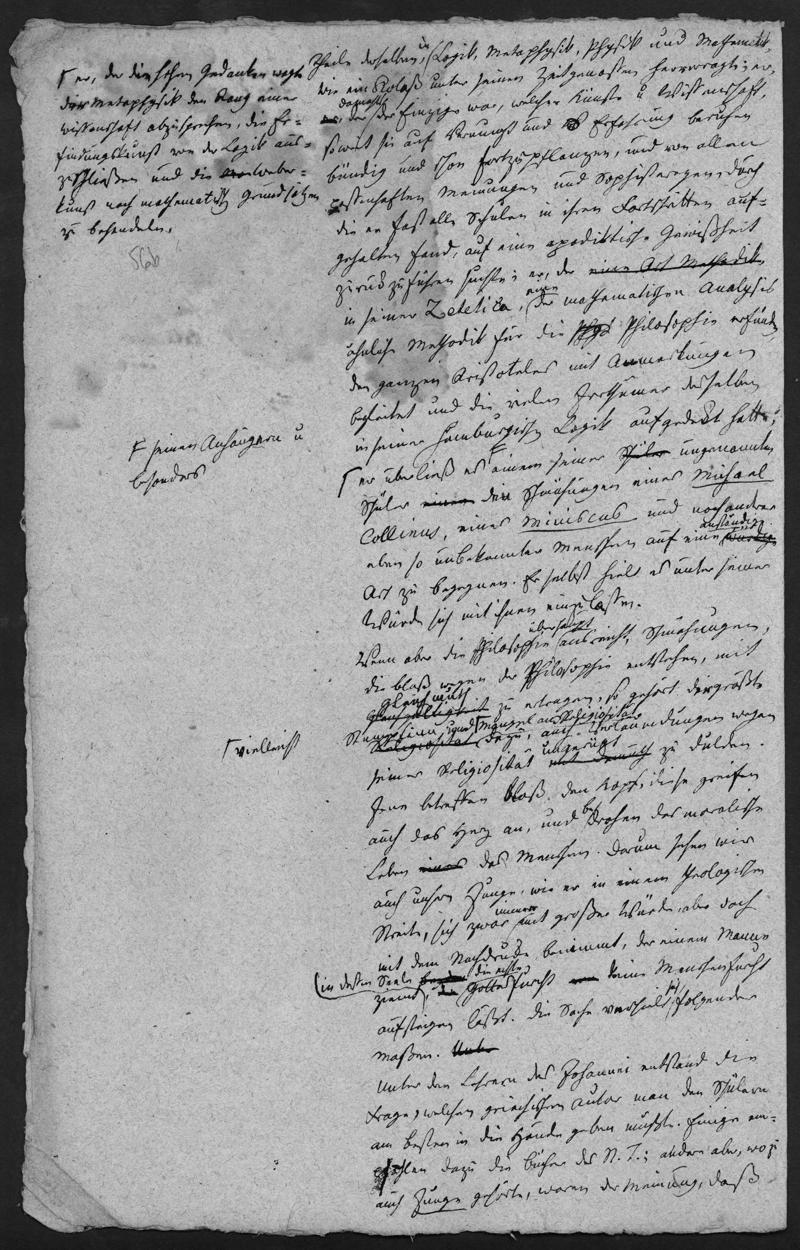 Γ er, der die hohen Gedanken wagte
der Metaphysik den Rang einer
Wissenschaft abzusprechen, die Er-
findungskunst von der Logik aus-
zuschließen und die Weber-
kunst nach mathematischen Grundsätzen
zu behandeln.
Ϝ seinen Anhängern u
besonders
Γ vielleicht
Theile derselben, in Logik, Metaphysik, Physik und Mathematik,
wie ein Koloß unter seinen Zeitgenossen hervorragte; er,
der der Einzige war, welcher Künste u Wissenschaft,
soweit sie auf Vernunft und Erfahrung beruhen
bündig und schon fortzupflanzen, und von allen
Meinungen und Sophistereyen, durch
die er fast alle Schulen in ihren Fortschritten auf-
gehalten fand, auf eine apodiktische Gewißheit
zurückzuführen suchte; er, der eine Art Methodik
in seiner Zetetica, eine der mathematischen Analysis
ähnliche Methodik für die Philosophie erfunden
den ganzen Aristoteles mit Anmerkungen
begleitet und die vielen Irrthümer desselben
in seiner Hamburgischen Logik aufgedeckt hatte;
Γ er überließ es Ϝ einem seiner Schüler ungenannten
Schüler einen den Schmähungen eines Michael
Collinus, eines Miniscus und noch anderer
eben so unbekannter Menschen auf eine anständige
Art zu begegnen. Er selbst hielt es unter seiner
Würde sich mit ihnen einzulassen.
Wenn aber die Philosophie überhaupt ausreicht, Schmähungen,
die bloß wegen der Philosophie entstehen, mit
Gleichmuth zu ertragen, so gehört der größte
Stumpfsinn und Γ Mangel an Religiosität dazu, auch Verläumdungen wegen
seiner Religiosität ungerügt zu dulden.
Jene betreffen bloß den Kopf, diese greifen
auch das Herz an, und bedrohen das moralische
Leben eines des Menschen. Darum sehen wir
auch unsern Junge, wie er in einem theologischen
Streite, sich zwar immer mit großer Würde, aber doch
mit dem Nachdrucke benimmt, der einem Manne
ziemt, (in dessen Seele die echte Gottesfurcht keine Menschenfurcht
aufsteigen läßt. Die Sache verhielt sich folgender
maßen. Unter
Unter den Lehrern des Johannei entstand die
Frage, welchen griechischen Autor man den Schülern
am besten in die Hände geben müßte. Einige em-
pfahlen dazu die Bücher des N. T.; andere aber, wozu
auch Junge gehörte, waren der Meinung, daß